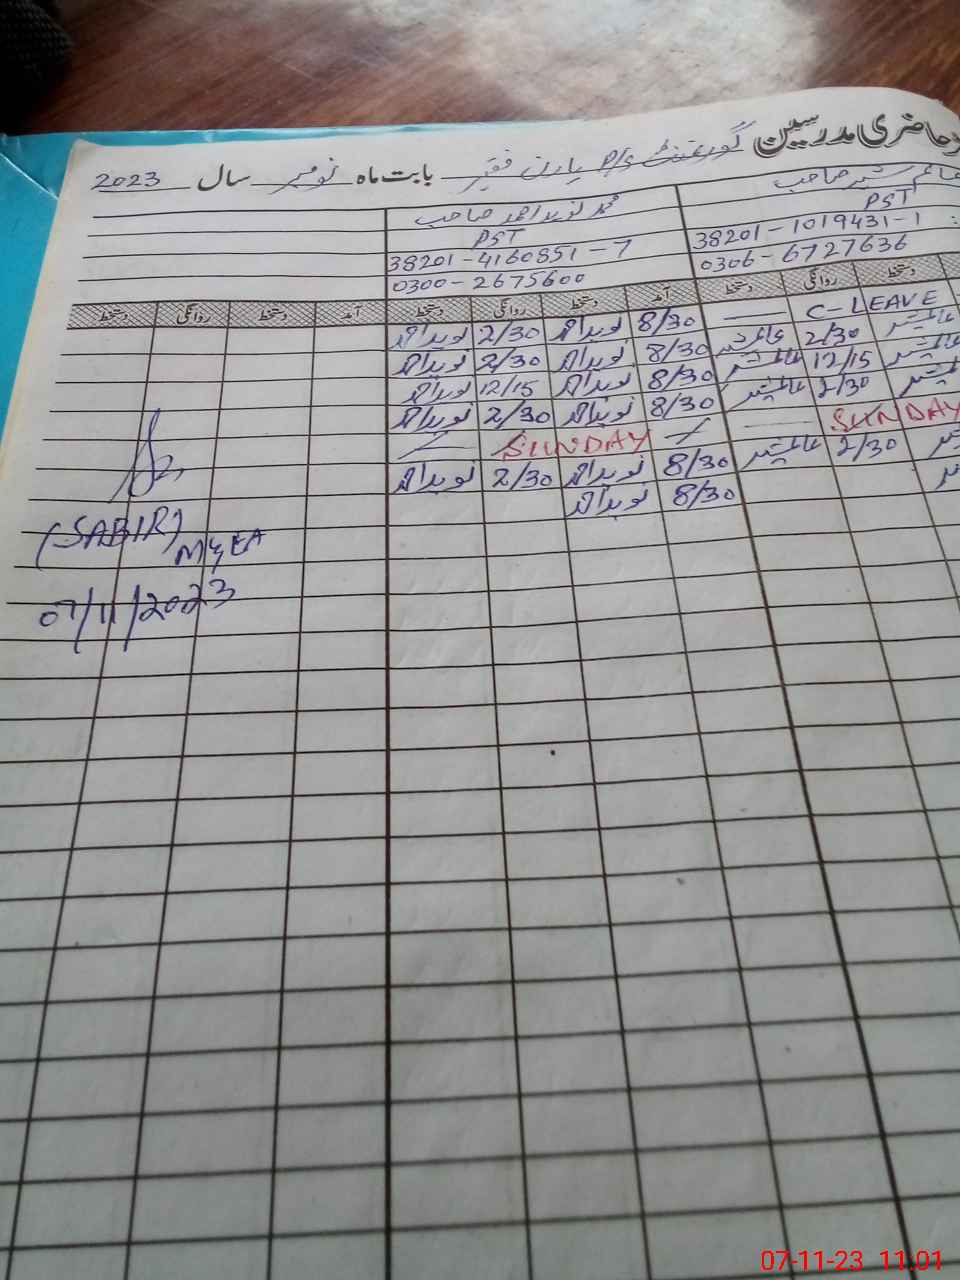 حاضری مدرسین گورنمنٹ P/S یارن فقیر بابت ماہ نومبر سال 2023
عالم شیر صاحب محمد نوید احمد صاحب
PST PST
38201-1019431-1 38201-4160851-7
0306-6727636 0300-2675600
دستخط روانگی دستخط آمد دستخط روانگی دستخط آمد دستخط روانگی دستخط
C-LEAVE — 8/30 نوید احمد 2/30 نوید احمد
عالم شیر 2/30 عالم شیر 8/30 نوید احمد 2/30 نوید احمد
عالم شیر 12/15 عالم شیر 8/30 نوید احمد 12/15 نوید احمد
عالم شیر 2/30 عالم شیر 8/30 نوید احمد 2/30 نوید احمد
SUNDAY — SUNDAY —
2/30 عالم شیر 8/30 نوید احمد 2/30 نوید احمد
8/30 نوید احمد
(SABIR)
M&EA
07/11/2023
07-11-23 11:01